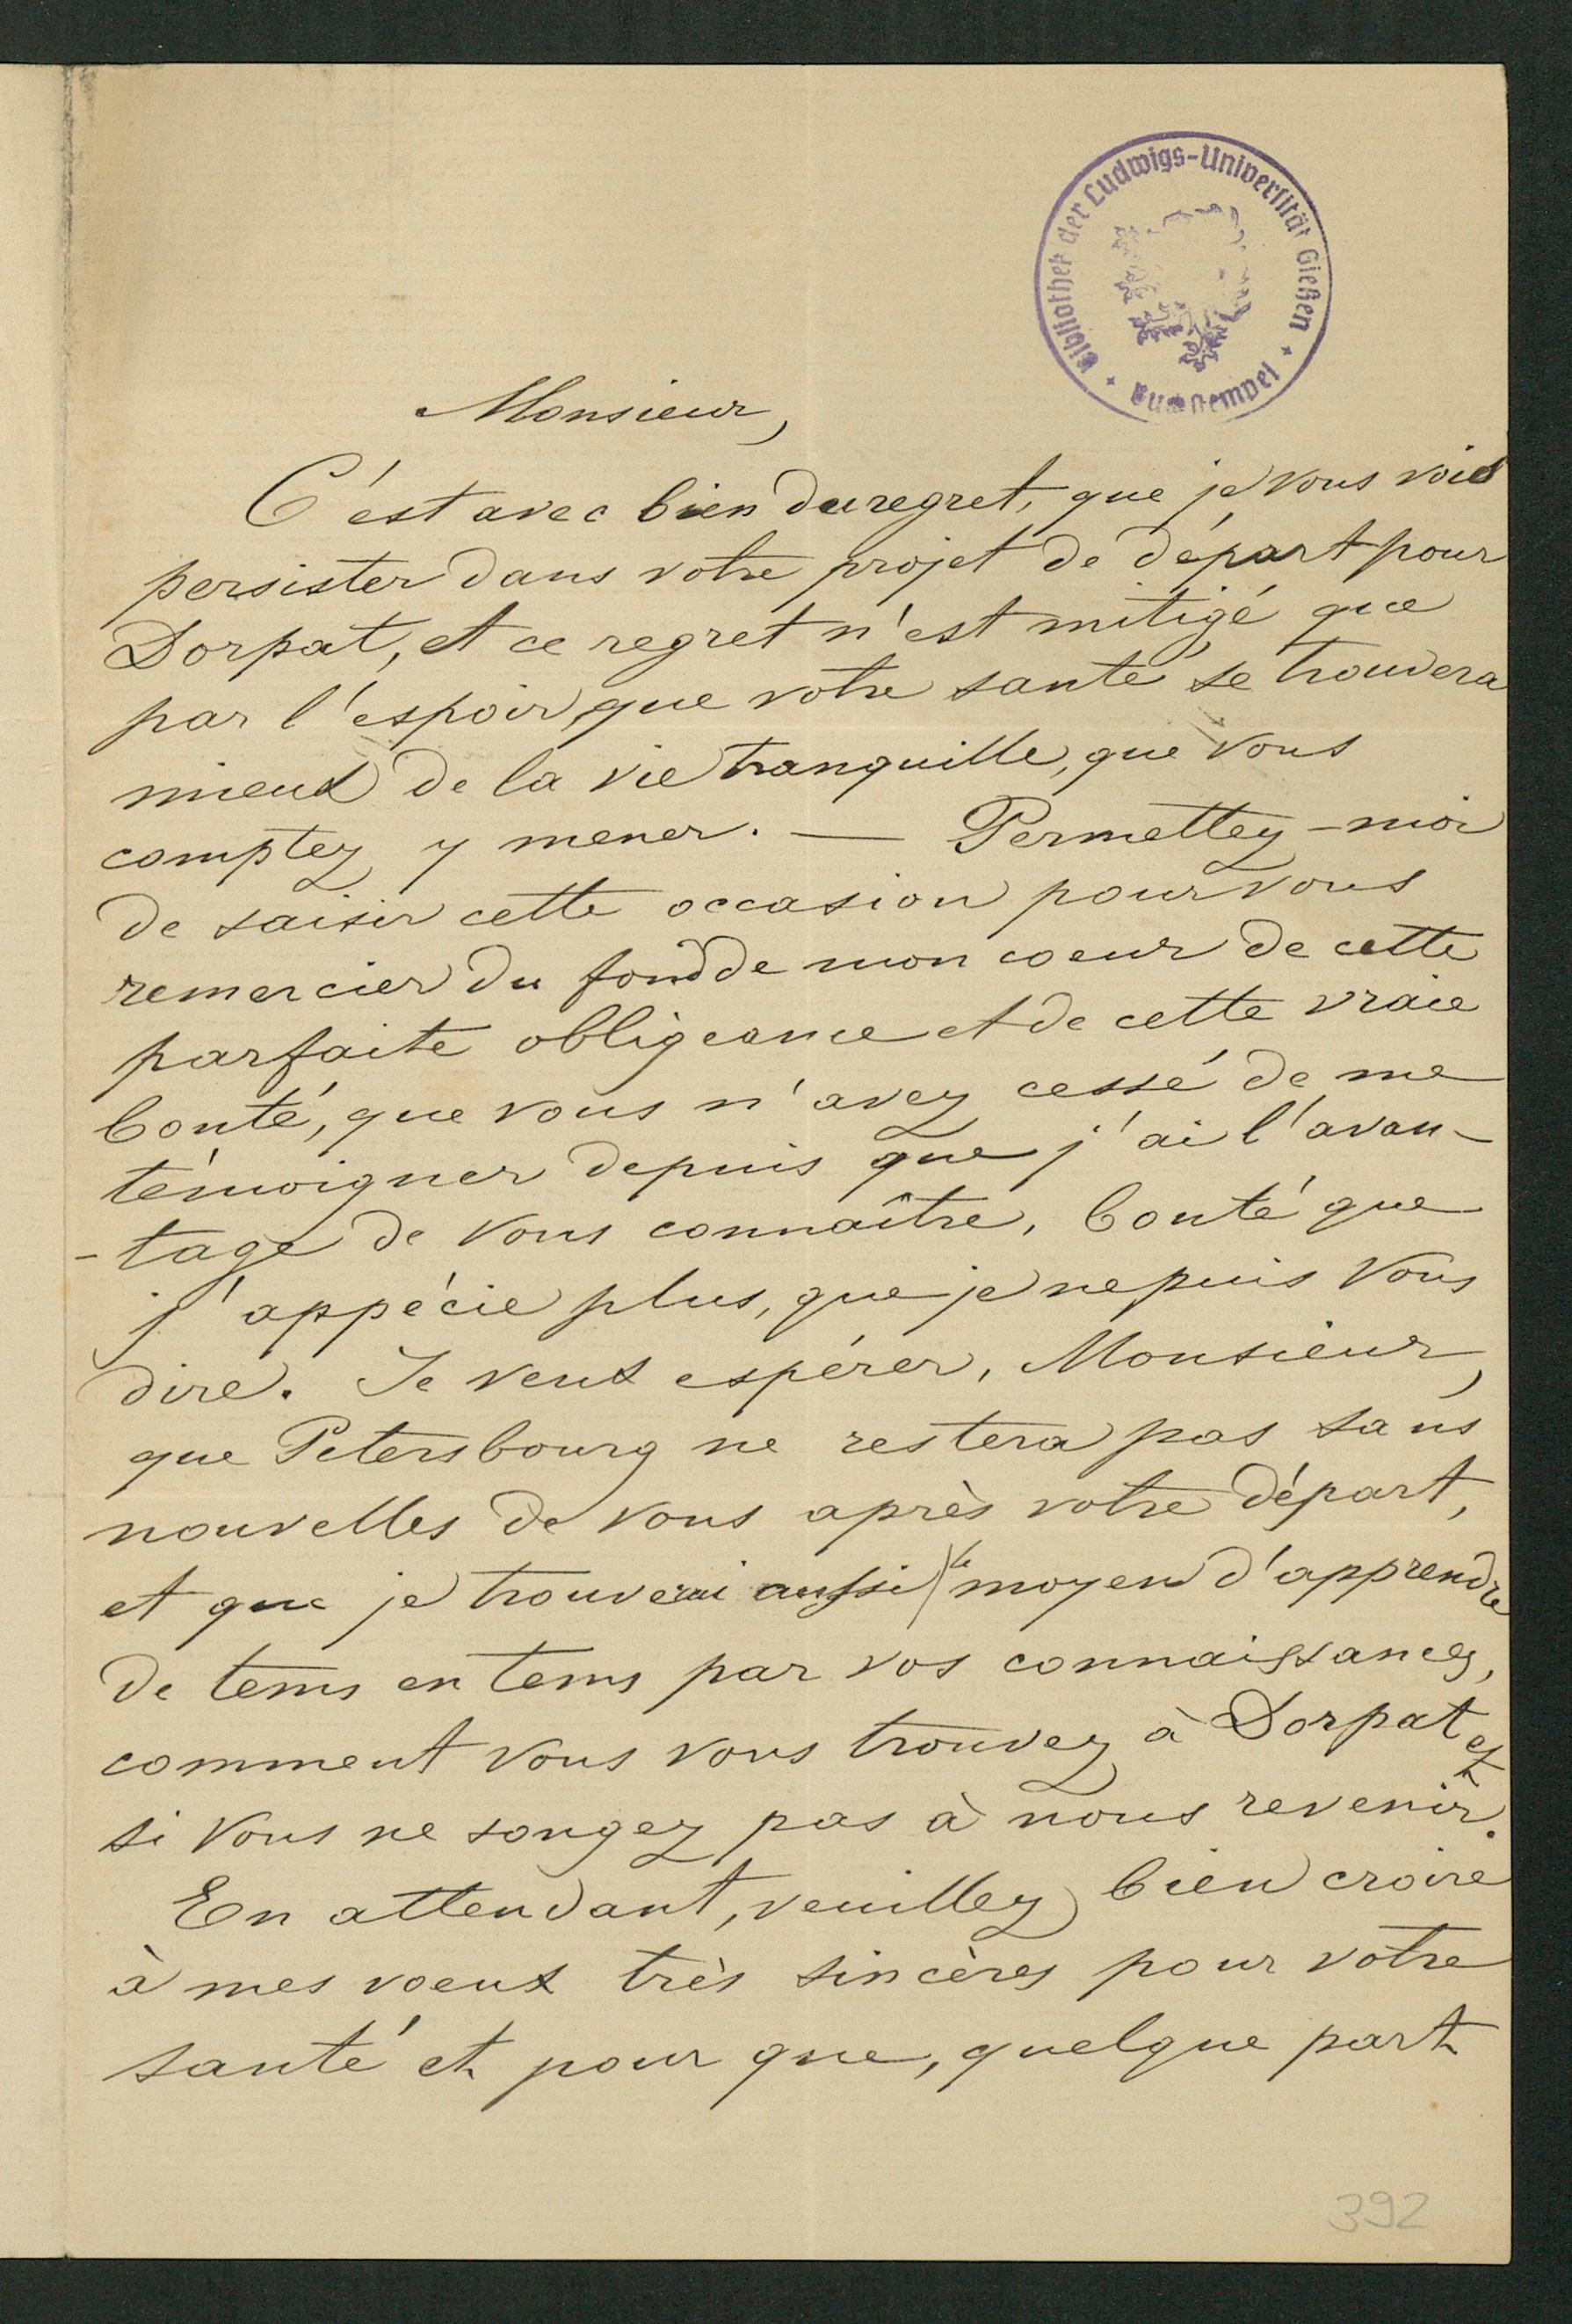 Bibliothek der Ludwigs-Universität Gießen
Monsieur,
C'est avec bien du regret, que je vous vois
persister dans votre projet de départ pour
Dorpat, et ce regret n'est mitigé que
par l'espoir, que votre santé se trouvera
mieux de la vie tranquille, que vous
comptez y mener. — Permettez-moi
de saisir cette occasion pour vous
remercier du fond de mon coeur de cette
parfaite obligeance et de cette vraie
bonté, que vous n'avez cessé de me
témoigner depuis que j'ai l'avan-
-tage de vous connaître, bonté que
j'appécie plus, que je ne puis vous
dire. Je veux espérer, Monsieur,
que Petersbourg ne restera pas sans
nouvelles de vous après votre départ,
et que je trouverai aussi le moyen d'apprendre
de tems en tems par vos connaissances,
comment vous vous trouvez à Dorpat et
si vous ne songez pas à nous revenir.
En attendant, veuillez bien croire
à mes voeux très sincères pour votre
santé et pour que, quelque part
392